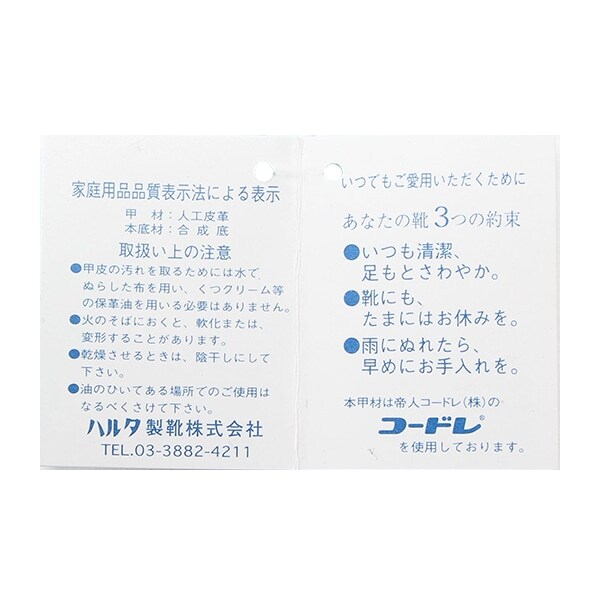 家庭用品品質表示法による表示
甲　材：人工皮革
本底材：合成底
取扱い上の注意
●甲皮の汚れを取るためには水で、
ぬらした布を用い、くつクリーム等
の保革油を用いる必要はありません。
●火のそばにおくと、軟化または、
変形することがあります。
●乾燥させるときは、陰干しにして
下さい。
●油のひいてある場所でのご使用は
なるべくさけて下さい。
ハルタ製靴株式会社
TEL.03-3882-4211
いつでもご愛用いただくために
あなたの靴3つの約束
●いつも清潔、
足もとさわやか。
●靴にも、
たまにはお休みを。
●雨にぬれたら、
早めにお手入れを。
本甲材は帝人コードレ(株)の
コードレ®
を使用しております。